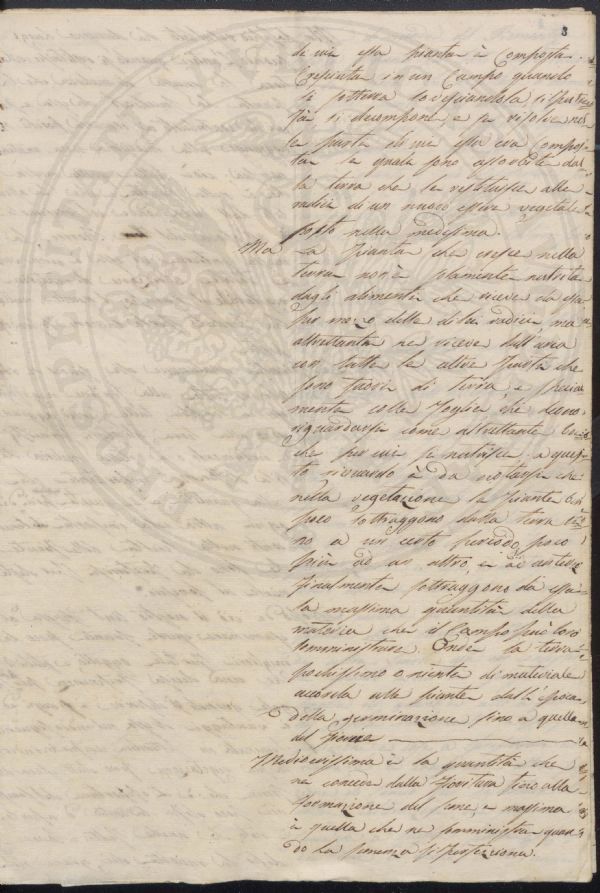 3
di cui essa pianta è composta.
Cresciuta in un Campo quando
si sotterra rovesciandola, si putrefà
si decompone, e si risolve nelle
parti di cui essa era compos
ta, le quali sono assorbite dal
la terra che le restituisce alle
radici di un nuovo essere vegetale
posto nella medesima.
Ma La pianta che cresce nella
terra non è solamente nutrita
dagli alimenti che riceve da essa
per mezzo delle di lei radici ma
altrettanto ne riceve dell'aria
con tutte le altre parti che
sono fuori di terra, e precisa
mente colle foglie che devono
riguardarsi come altrettante bocche
che per cui si nutrisce. a ques
to riguardo è da notarsi che
nella vegetazione le piante ben
poco sottraggono dalla terra si
no a un certo periodo, poco
più ad un altro, e
finalmente sottraggono da essa
la massima quantità della
materia che il Campo può loro
somministrare. Onde la terra
pochissimo o niente di materiale
accorda alle piante dall'epoca
della germinazione fino a quella
del fiore
Mediocrissima è la quantità che
ne concede dalla fioritura fino alla
formazione del seme, e massima
è quella che ne somministra quan
do la semenza si perfeziona.